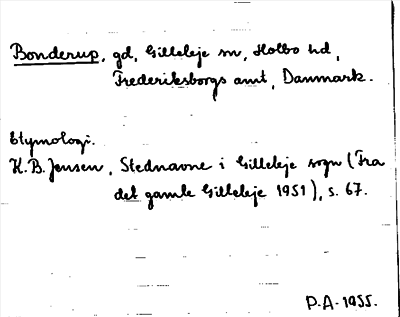 Bonderup, gd, Gilleleje sn, Holbo hd,
Frederiksborgs amt, Danmark.
Etymologi.
K.B. Jensen, Stednavne i Gilleleje sogn (Fra
det gamle Gilleleje 1951), s. 67.
P.A. 1955.